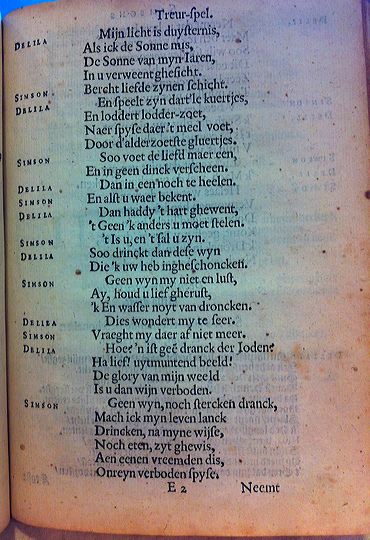 Treur-spel.
DELILA Mijn licht is duysternis,
Als ick de Sonne mis,
De Sonne van myn Iaren,
In u verweent ghesicht.
SIMSON Bercht liefde zynen schicht.
DELILA En speelt zyn dart'le kuertjes,
En loddert lodder-zoet,
Naer spyse daer 't meel voet,
Door d'alderzoetste gluertjes.
SIMSON Soo voet de liefd maer een,
En in geen dinck verscheen.
DELILA Dan in een noch te heelen.
SIMSON En alst u waer bekent.
DELILA Dan haddy 't hart ghewent,
't Geen 'k anders u moet stelen.
SIMSON 't Is u, en 't sal u zyn.
DELILA Soo drinckt dan dese wyn
Die 'k uw heb ingheschoncken.
SIMSON Geen wyn my niet en lust,
Ay, houd u lief gherust,
'k En wasser noyt van droncken.
DELILA Dies wondert my te seer.
SIMSON Vraeght my daer af niet meer.
DELILA Hoe? 'n ist geẽ dranck der Joden?
Ha lief! uytmuntend beeld!
De glory van mijn weeld
Is u dan wijn verboden.
SIMSON Geen wyn, noch stercken dranck,
Mach ick myn leven lanck
Drincken, na myne wijse,
Noch eten, zyt ghewis,
Aen eenen vreemden dis,
Onreyn verboden spyse.
E 2 Neemt